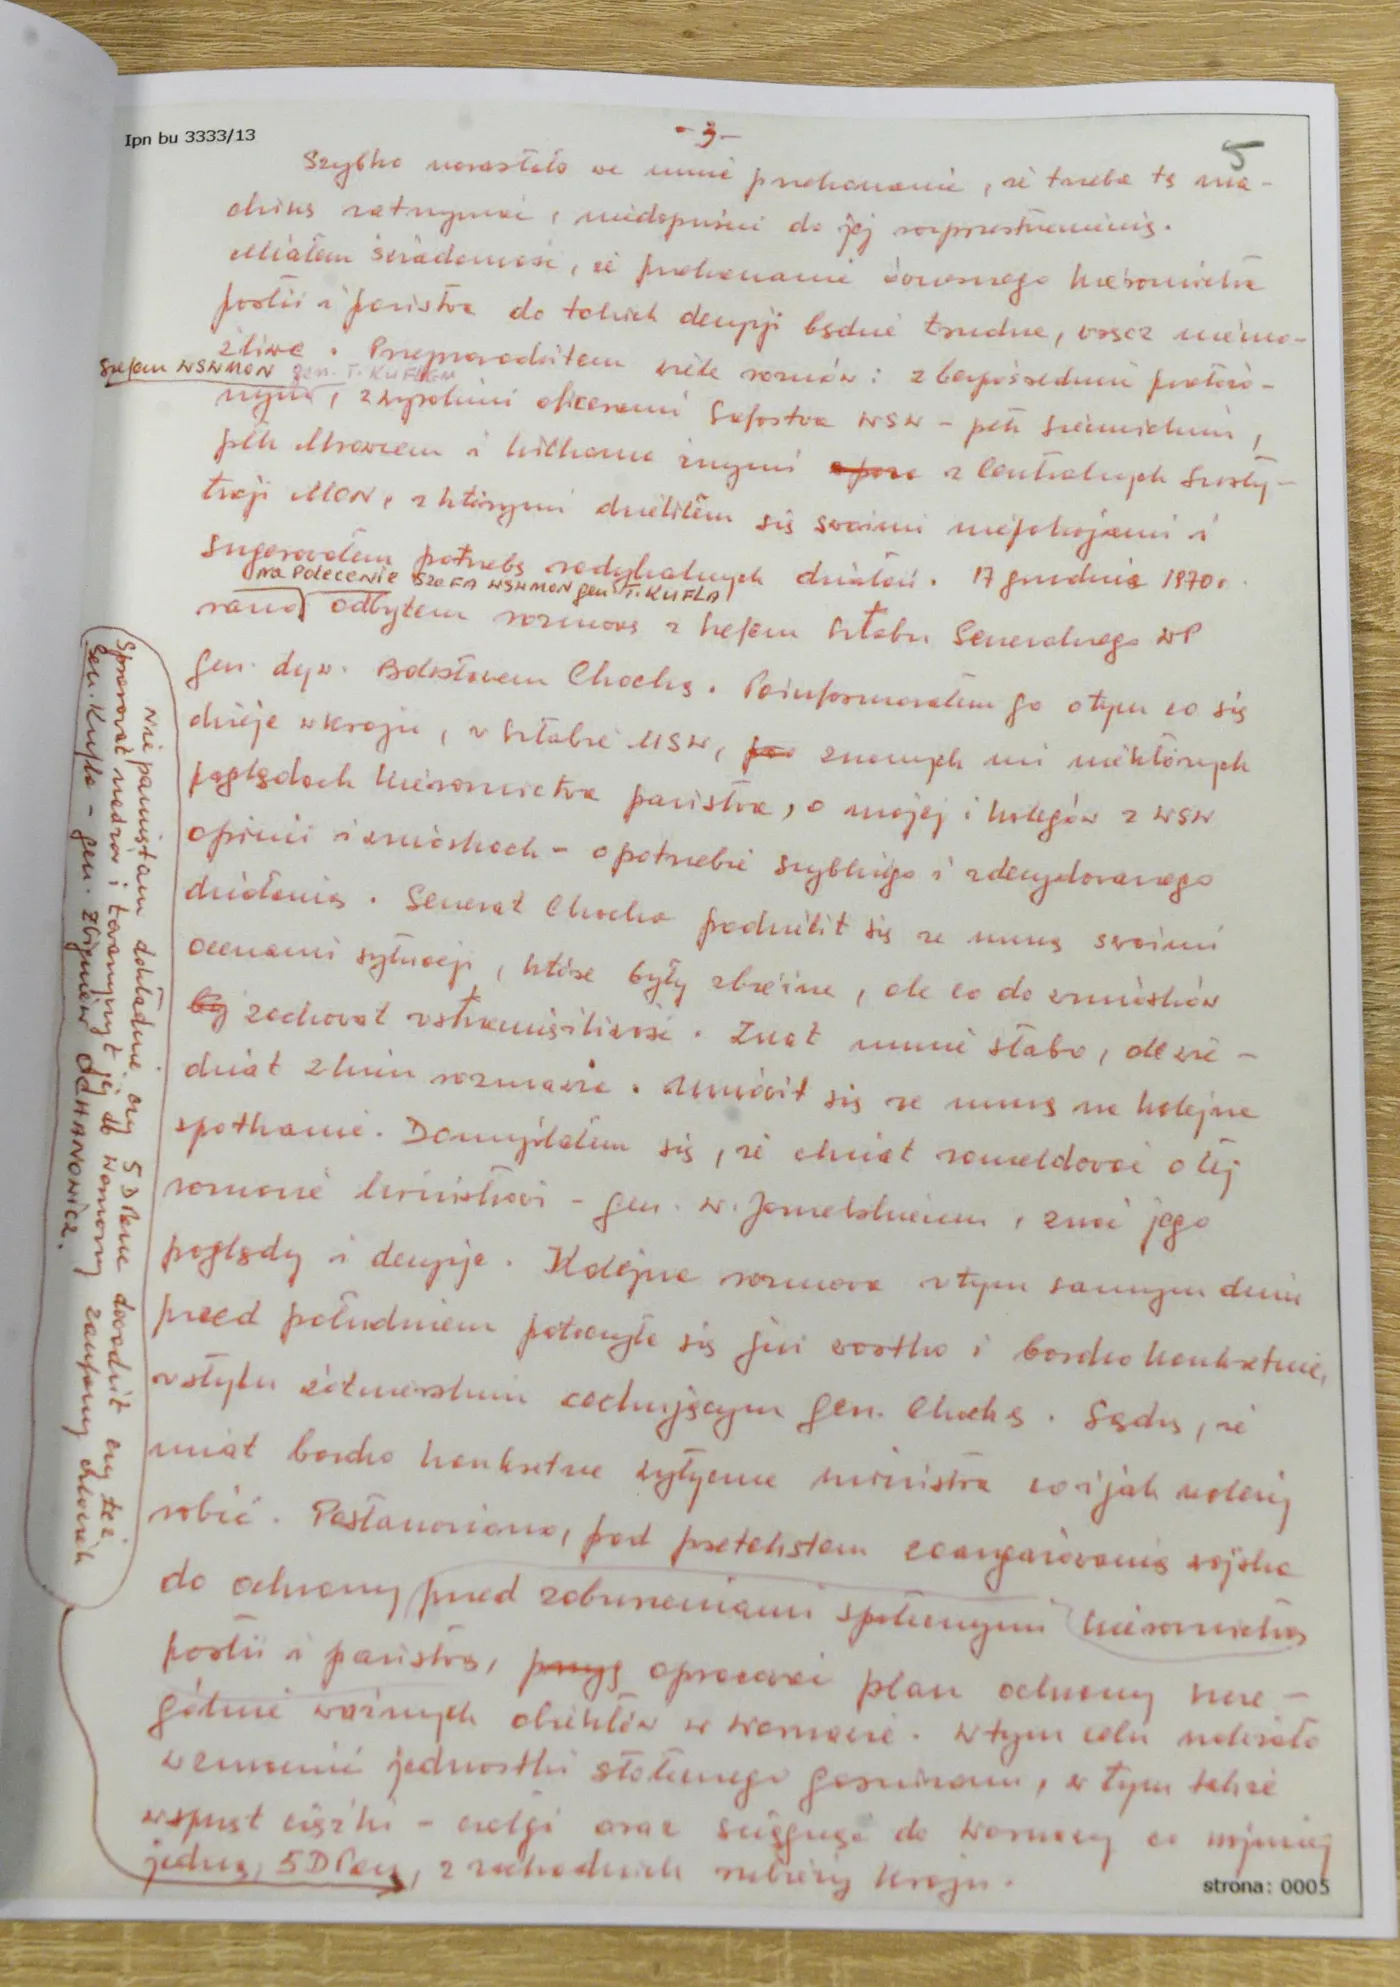 Ipn bu 3333/13
- 3 -
5
Szybko narastało we mnie przekonanie, że trzeba tę ma-
chinę zatrzymać, niedopuścić do jej rozprzestrzenienia.
Miałem świadomość, że przekonanie ówczesnego kierownictwa
partii i państwa do takich decyzji będzie trudne, wręcz niemo-
żliwe. Przeprowadziłem wiele rozmów: z bezpośrednim przełożo-
szefem WSWMON gen. T. KUFLEM
nym, z wysokimi oficerami Szefostwa WSW - płk
płk i kilkoma innymi z Centralnych Instytu-
cji MON, z którymi dzieliłem się swoimi niepokojami i
sugerowałem potrzebę radykalnych działań. 17 grudnia 1970r.
na POLECENIE SZEFA WSWMON gen. T. KUFLA
rano odbyłem rozmowę z szefem Sztabu Generalnego WP
gen. dyw. Bolesławem Chochą. Poinformowałem go o tym co się
dzieje w kraju, w Sztabie MSW, znanych mi niektórych
poglądach kierownictwa państwa, o mojej i kolegów z WSW
opinii i wnioskach - o potrzebie szybkiego i zdecydowanego
działania. Generał Chocha podzielił się ze mną swoimi
ocenami sytuacji, które były zbieżne, ale co do wniosków
zachował wstrzemięźliwość. Znał mnie słabo, ale wie-
dział z kim rozmawia. Umówił się ze mną na kolejne
spotkanie. Domyślałem się, że chciał zameldować o tej
rozmowie Ministrowi - gen. W. Jaruzelskiemu, znać jego
poglądy i decyzje. Kolejna rozmowa w tym samym dniu
przed południem potoczyła się już wartko i bardzo konkretnie,
w stylu żołnierskim cechującym gen. Chochę. Sądzę, że
miał bardzo konkretne wytyczne ministra co i jak należy
robić. Postanowiono, pod pretekstem zaangażowania wojska
do ochrony przed zaburzeniami społecznymi kierownictwa
partii i państwa, opracować plan ochrony szcze-
gólnie ważnych obiektów w Warszawie. W tym celu należało
wzmocnić jednostki stołecznego garnizonu, w tym także
w sprzęt ciężki - czołgi oraz ściągnąć do Warszawy co najmniej
jedną, 5DPanc, z zachodnich rubieży kraju.
Nie pamiętam dokładnie czy 5 DPanc dowodził czy też
sprawował nadzór i towarzyszył jej do Warszawy zaufany człowiek
gen. Kufla - gen. Zbigniew OCHANOWICZ.
strona: 0005